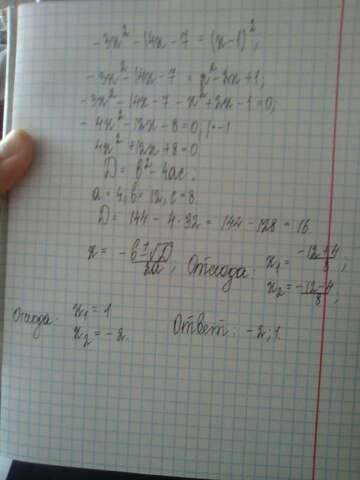 -3x² - 14x - 7 = (x-1)²;
-3x² - 14x - 7 = x² - 2x + 1;
-3x² - 14x - 7 - x² + 2x - 1 = 0;
-4x² - 12x - 8 = 0, | · -1
4x² + 12x + 8 = 0
D = b² - 4ac.
a = 4, b = 12, c = 8.
D = 144 - 4 · 32 = 144 - 128 = 16
x = -b ± √D / 2a, Отсюда: x₁ = -12+4 / 8,
x₂ = -12-4 / 8,
Отсюда: x₁ = 1
x₂ = -2. Ответ: -2; 1.